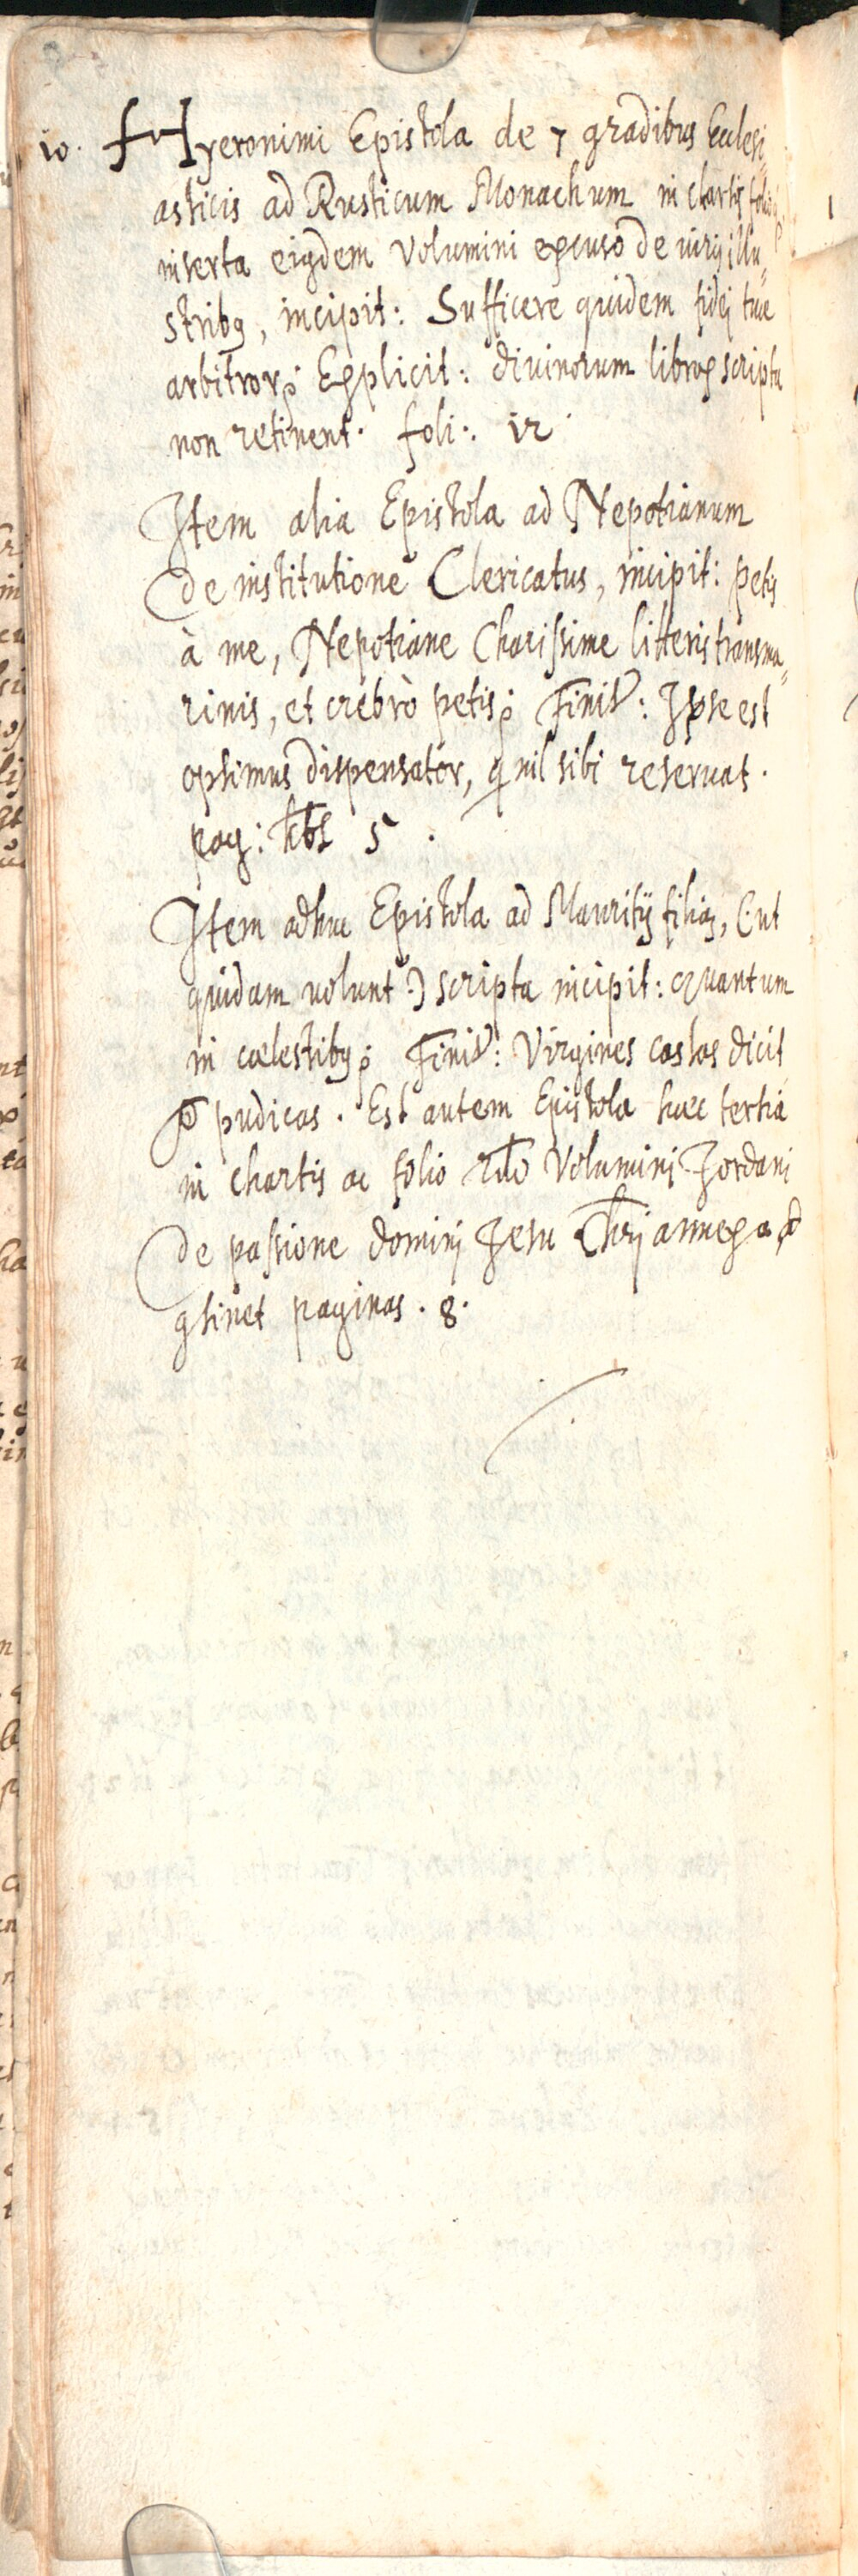 10. Hyeronimi Epistola de 7 gradibus Eclesi¬
asticis ad Rusticum Monachum in chartis folio
inserta eiqdem Volumini excuso de uirij illu¬
stribq, incipit: Sufficere quidem fidej tuae
arbitror Explicit: diuinorum libros scripta
non retinent. foli: 12
Item alia Epistola ad Nepotianum
De institutione Clericatus, incipit: petis
à me, Nepotiane Charissime litteris transma¬
rinis, et crebrò petis Finit: Ipse est
optimus dispensator, q nil sibi reseruat.
pag: hbt 5.
Item adhuc Epistola ad Mauritij filiã, (ut
quidam uolunt) scripta incipit: Quantum
in coelestibq Finit: Virgines castas dicit
pudicas. Est autem Epistola haec tertia
in chartis ac folio Voluminj Jordani
De passione dominj Jesu Chrj annexa
qtinet paginas. 8.